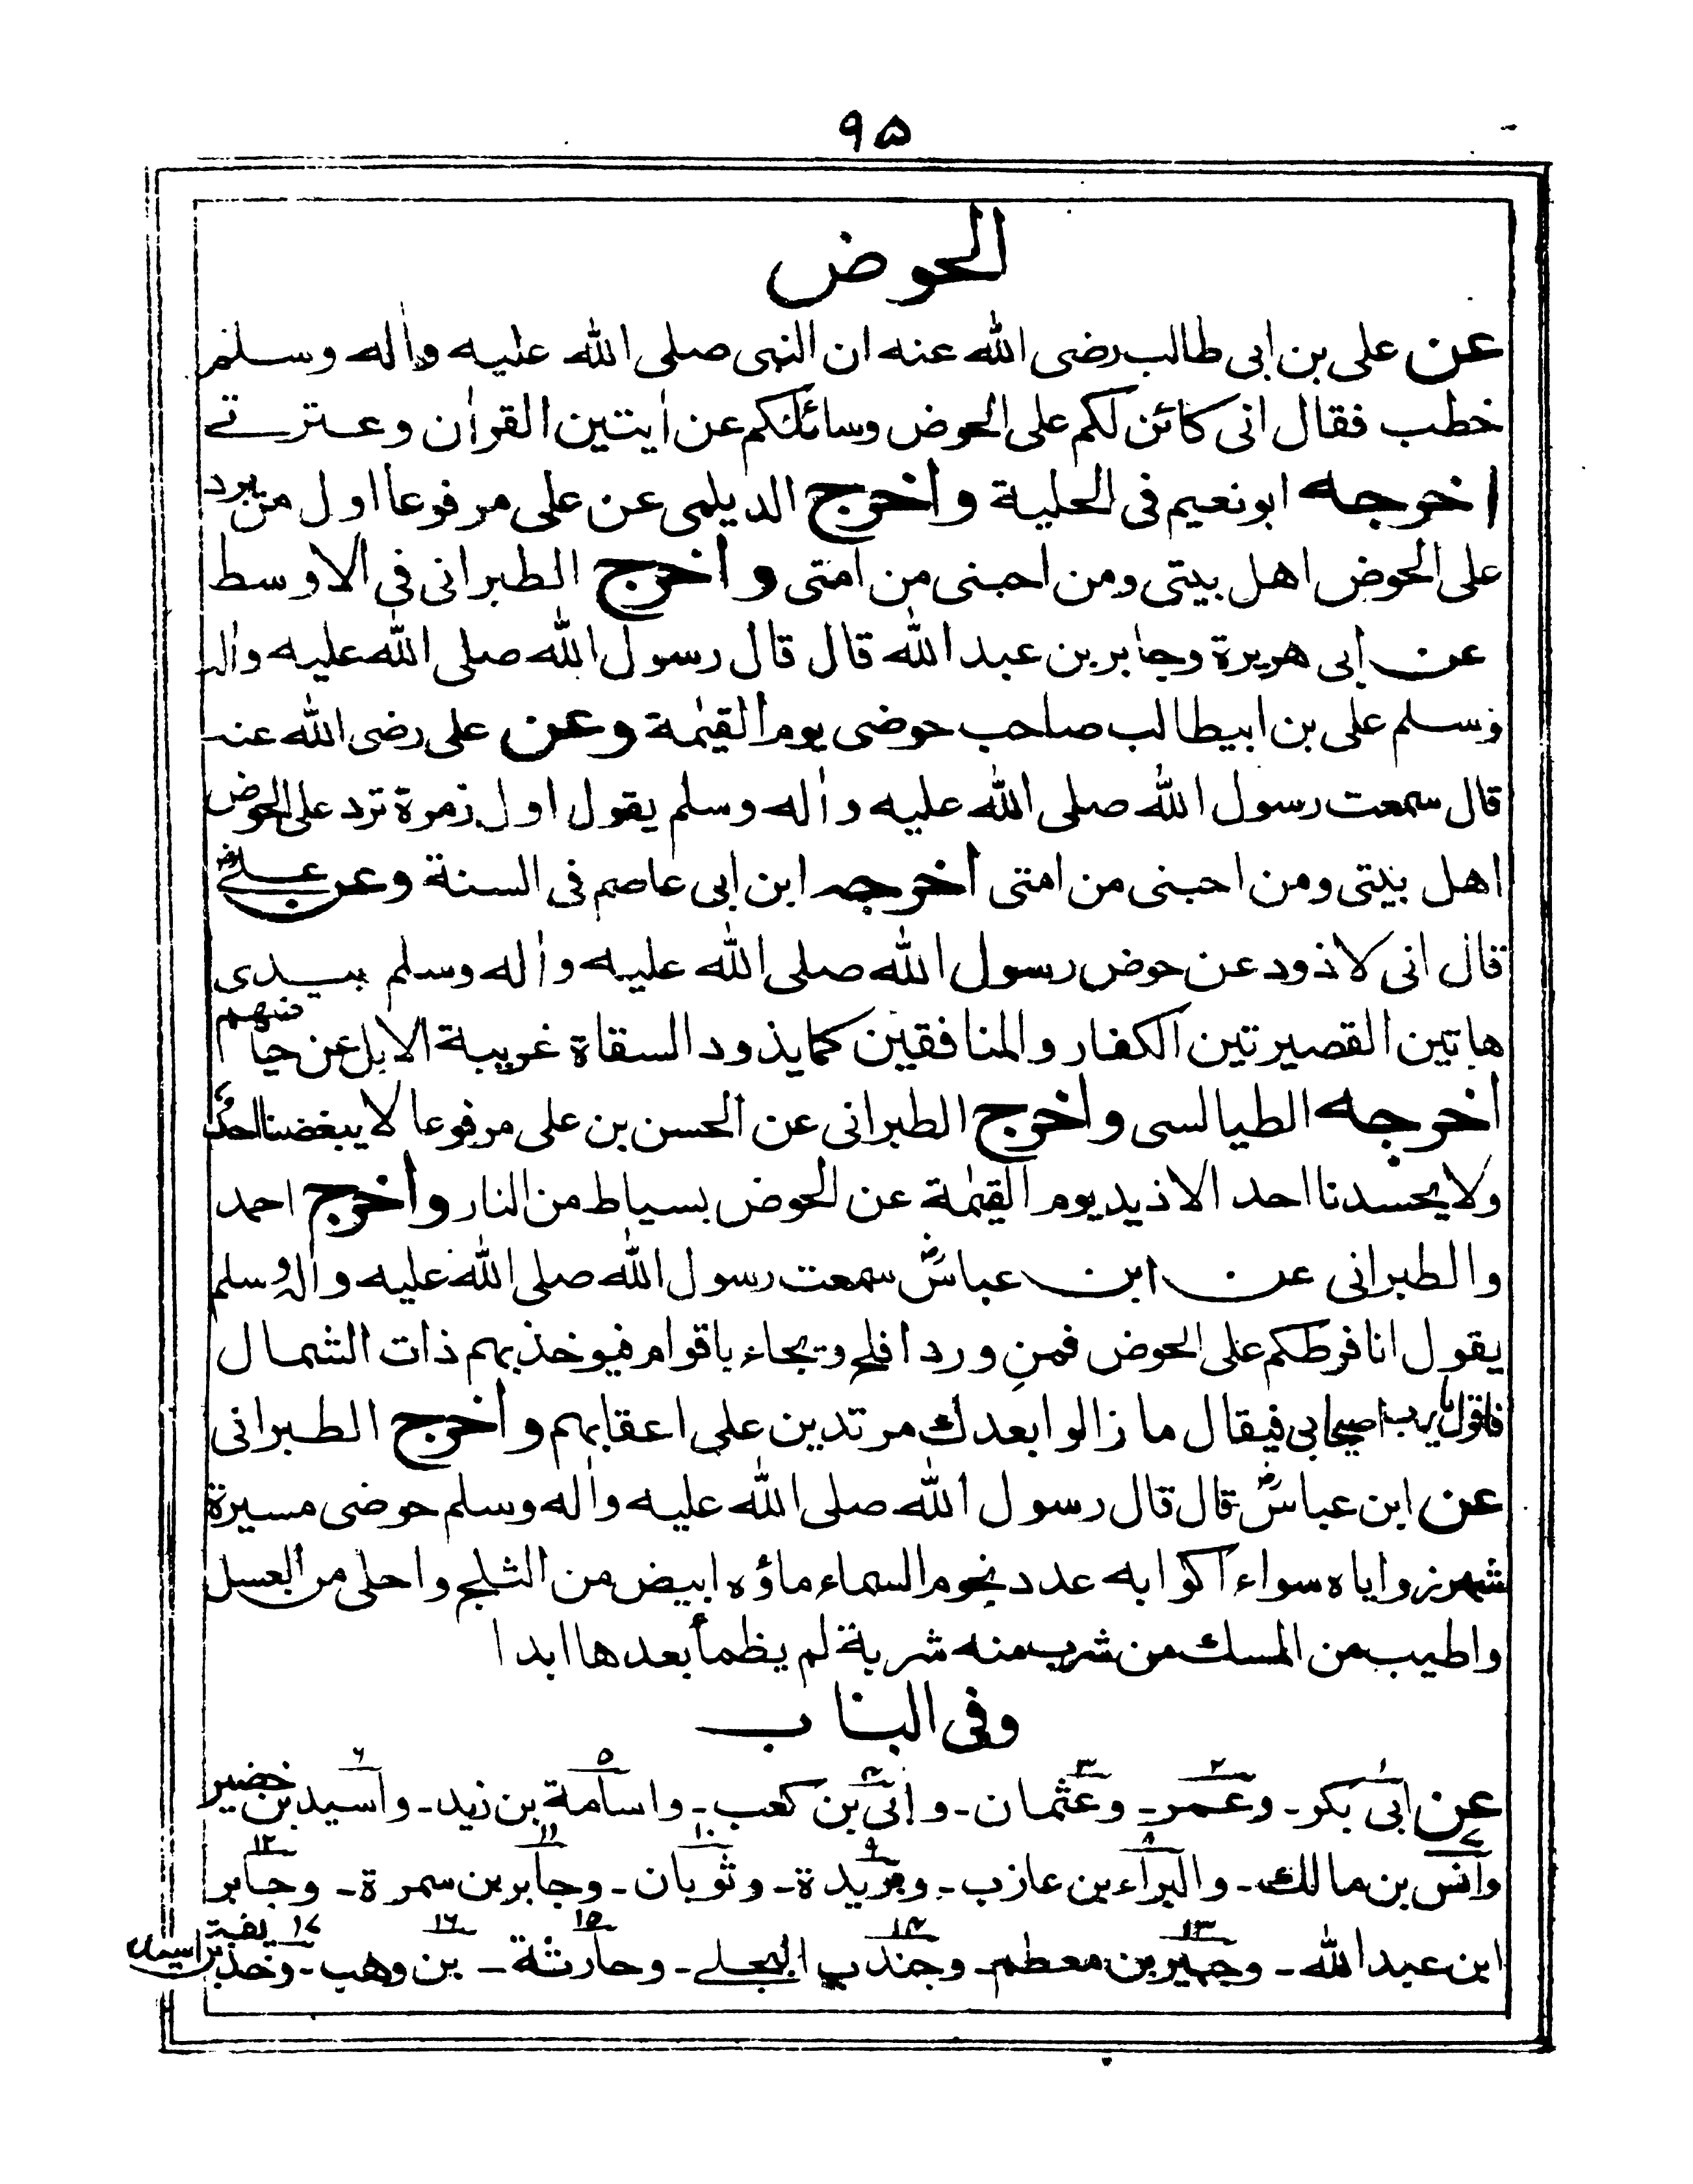 ٩٥
الحوض
عن علی بن ابی طالب رضی الله عنه ان النبی صلی الله علیه واٰله وسلم
خطب فقال انی کائن لکم علی الحوض وسائلکم عن اٰیتین القراٰن وعترتے
اخرجه ابونعیم فی الحلیة واخرج الدیلمی عن علی مرفوعا اول من یرد
علی الحوض اهل بیتی ومن احبنی من امتی واخرج الطبرانی فی الاوسط
عن ابی هریرة وجابر بن عبد الله قال قال رسول الله صلی الله علیه واٰله
وسلم علی بن ابیطالب صاحب حوضی یوم القیٰمة وعن علی رضی الله عنه
قال سمعت رسول الله صلی الله علیه واٰله وسلم یقول اول زمرة ترد علی الحوض
اهل بیتی ومن احبنی من امتی اخرجه ابن ابی عاصم فی السنة وعن علےؓ
قال انی لاذود عن حوض رسول الله صلی الله علیه واٰله وسلم بیدی
هاتین القصیرتین الکفار والمنافقین کما یذود السقاة غریبة الابل عن حیاضهم
اخرجه الطیالسی واخرج الطبرانی عن الحسن بن علی مرفوعا لا یبغضنا احد
ولا یحسدنا احد الا ذید یوم القیٰمة عن الحوض بسیاط من النار واخرج احمد
والطبرانی عن ابن عباسؓ سمعت رسول الله صلی الله علیه واٰله وسلم
یقول انا فرطکم علی الحوض فمن ورد افلح ویجاء باقوام فیوخذ بهم ذات الشمال
فاقول یارب اصیحابی فیقال ما زالوا بعدك مرتدین علی اعقابهم واخرج الطبرانی
عن ابن عباسؓ قال قال رسول الله صلی الله علیه واٰله وسلم حوضی مسیرة
شهر زوایاه سواء اکوابه عدد نجوم السماء ماؤه ابیض من الثلج واحلی من العسل
واطیب من المسك من شرب منه شربة لم یظمأ بعدها ابدا
وفی الباب
عن ابی بکر ۱ - وعمر ۲ - وعثمان ۳ - وابی بن کعب ۴ - واسامة بن زید ۵ - واسید بن خضیر ۶
وانس بن مالك ۷ - والبراء بن عازب ۸ - وبریدة ۹ - وثوبان ۱۰ - وجابر بن سمرة ۱۱ - وجابر ۱۲
ابن عبد الله - وجبیر بن معطم ۱۳ - وجندب البجلے ۱۴ - وحارثة ۱۵ - بن وهب ۱۶ - وحذیفة بن اسید ۱۷